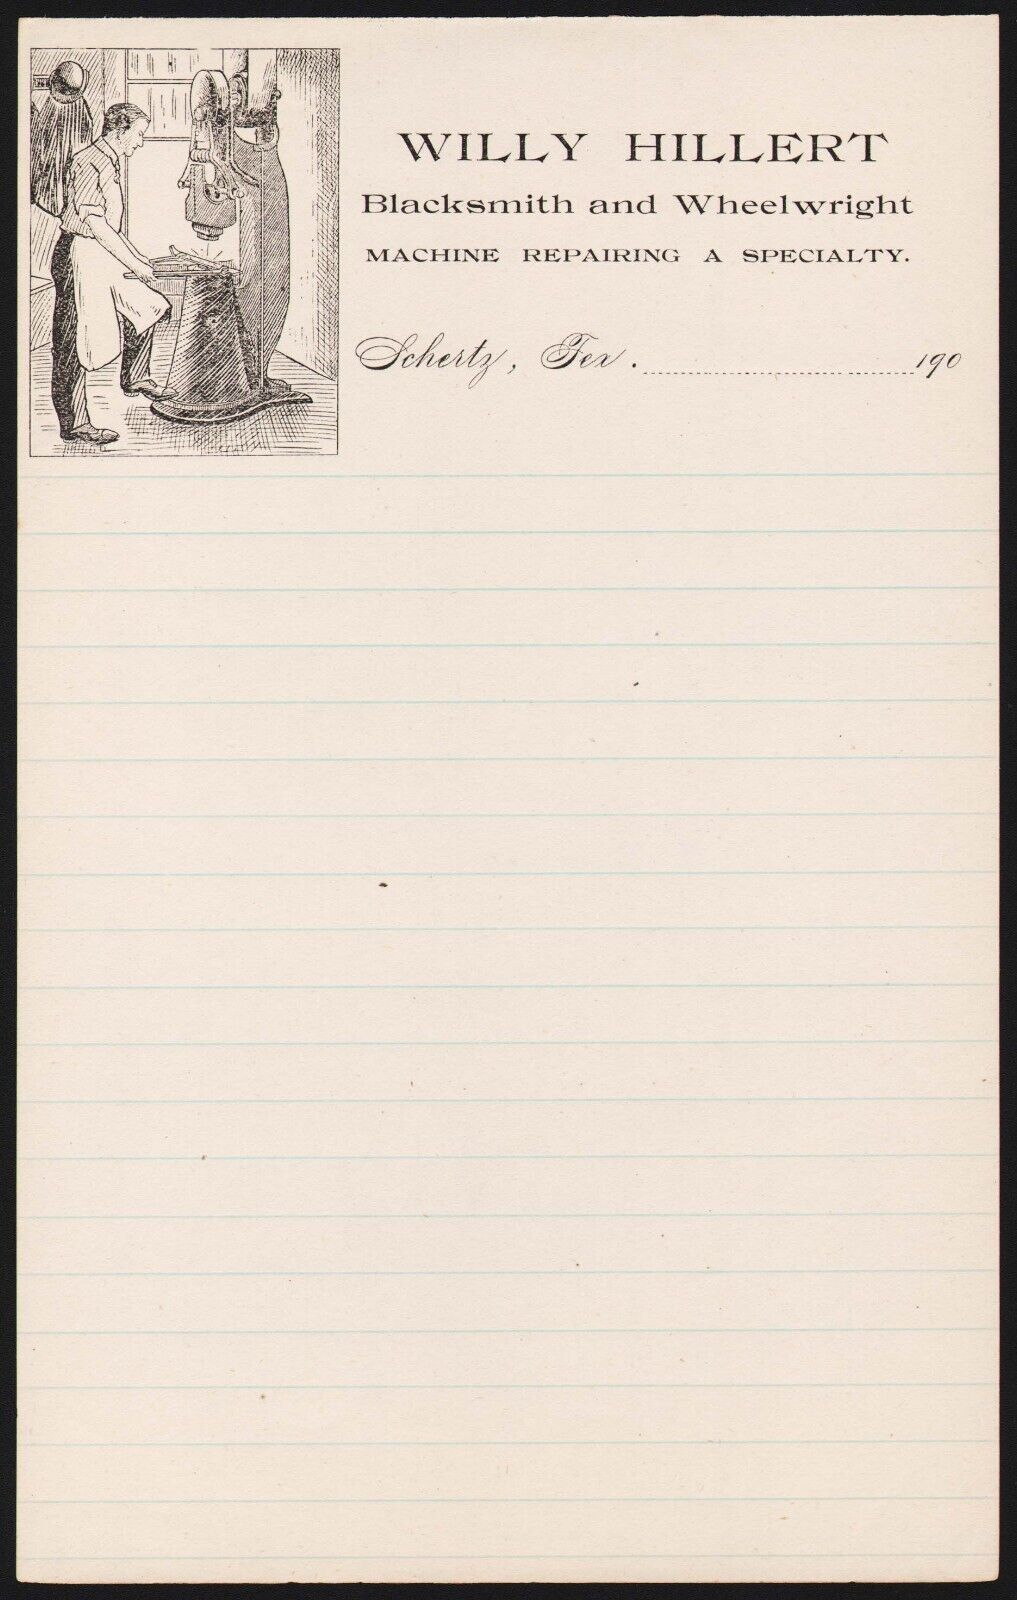 WILLY HILLERT
Blacksmith and Wheelwright
MACHINE REPAIRING A SPECIALTY.
Schertz, Tex. 190